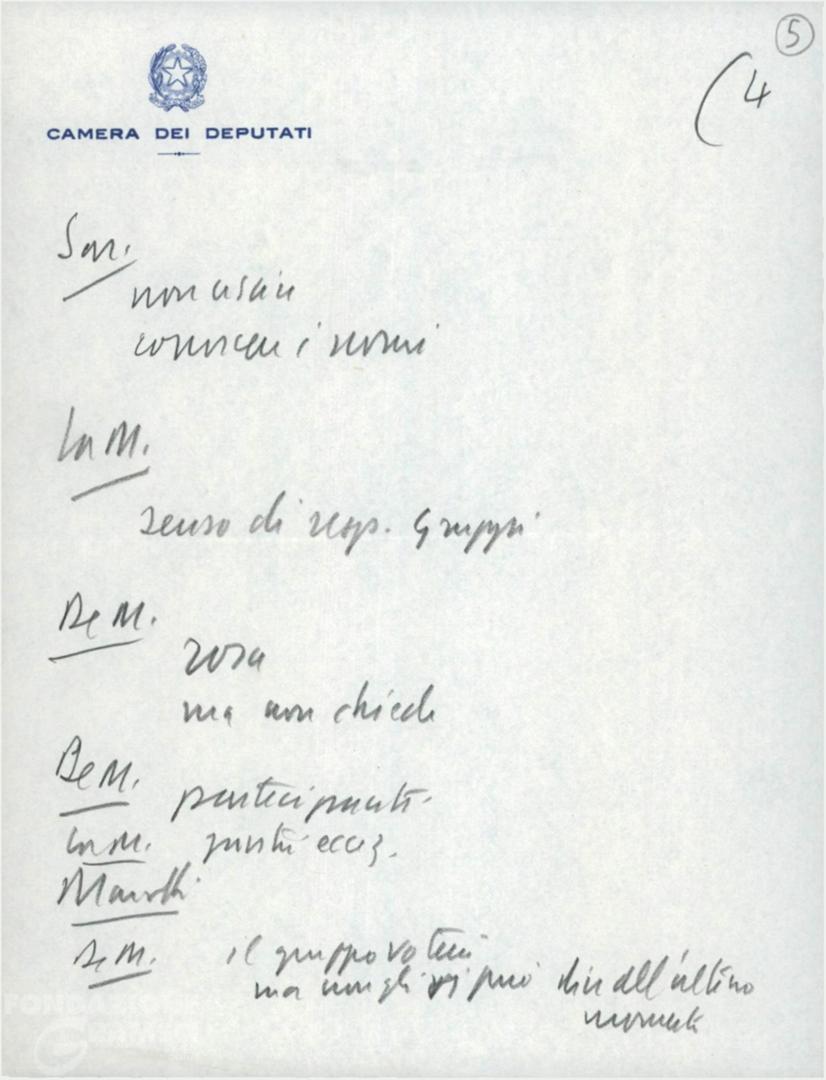 5
(4
CAMERA DEI DEPUTATI
Sar.
non uscire
conoscere i nomi
La M.
senso di resp. Gruppi
De M.
rosa
ma non chiede
De M. partecipanti
La M. giusta eccez.
De M. il gruppo voterà
ma non gli si può dire all'ultimo
momento
FONDAZIONE